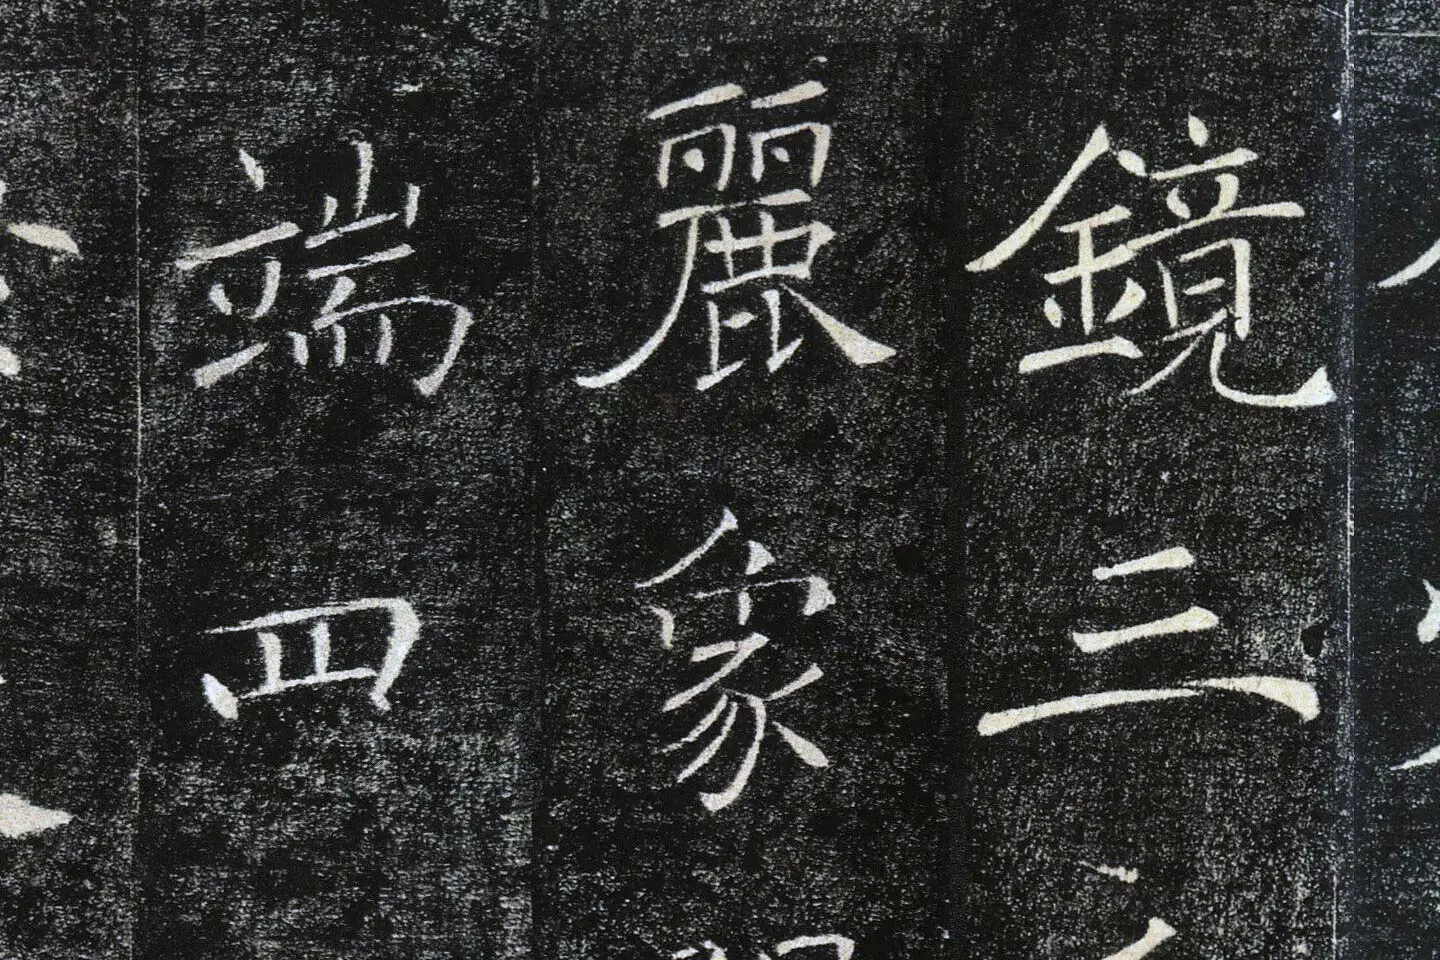 鏡三
麗象
端四